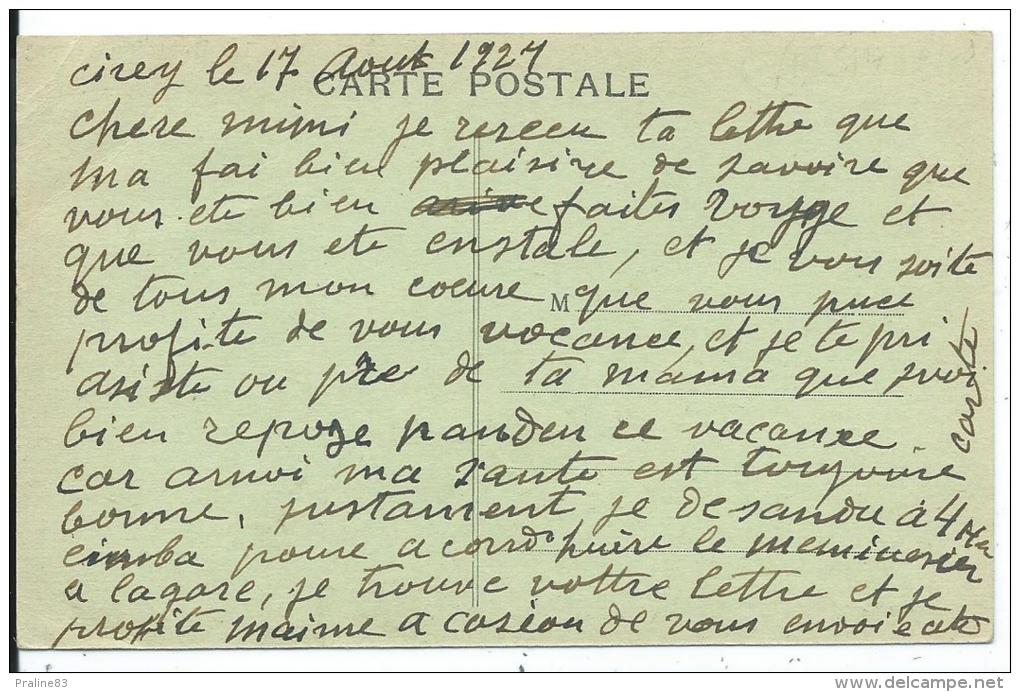 cirey le 17 Aout 1927
CARTE POSTALE
chere mimi je resceu ta lettre que
ma fai bien plaisire de savoire que
vous ete bien faites voyge et
que vous ete enstale, et je vous soite
de tous mon coeure que vous puce
M
profite de vous vacance, et je te pri
asiste ou pre de ta mama que soit
bien repoze panden ce vacance.
car amoi ma sante est toujoure
bonne, justament je desandu à 4 H
poure le
a lagare, je trouve vottre lettre et je
profite maime a casion de vous envoié
carte
Praline83